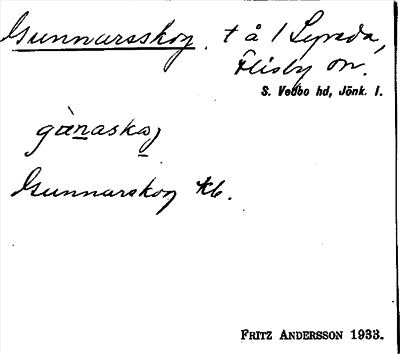 Gunnarsskog. t å 1 Lyveda,
Flisby sn.
S. Vedbo hd, Jönk. l.
gànaskoj
Gunnarskog kb.
FRITZ ANDERSSON 1933.